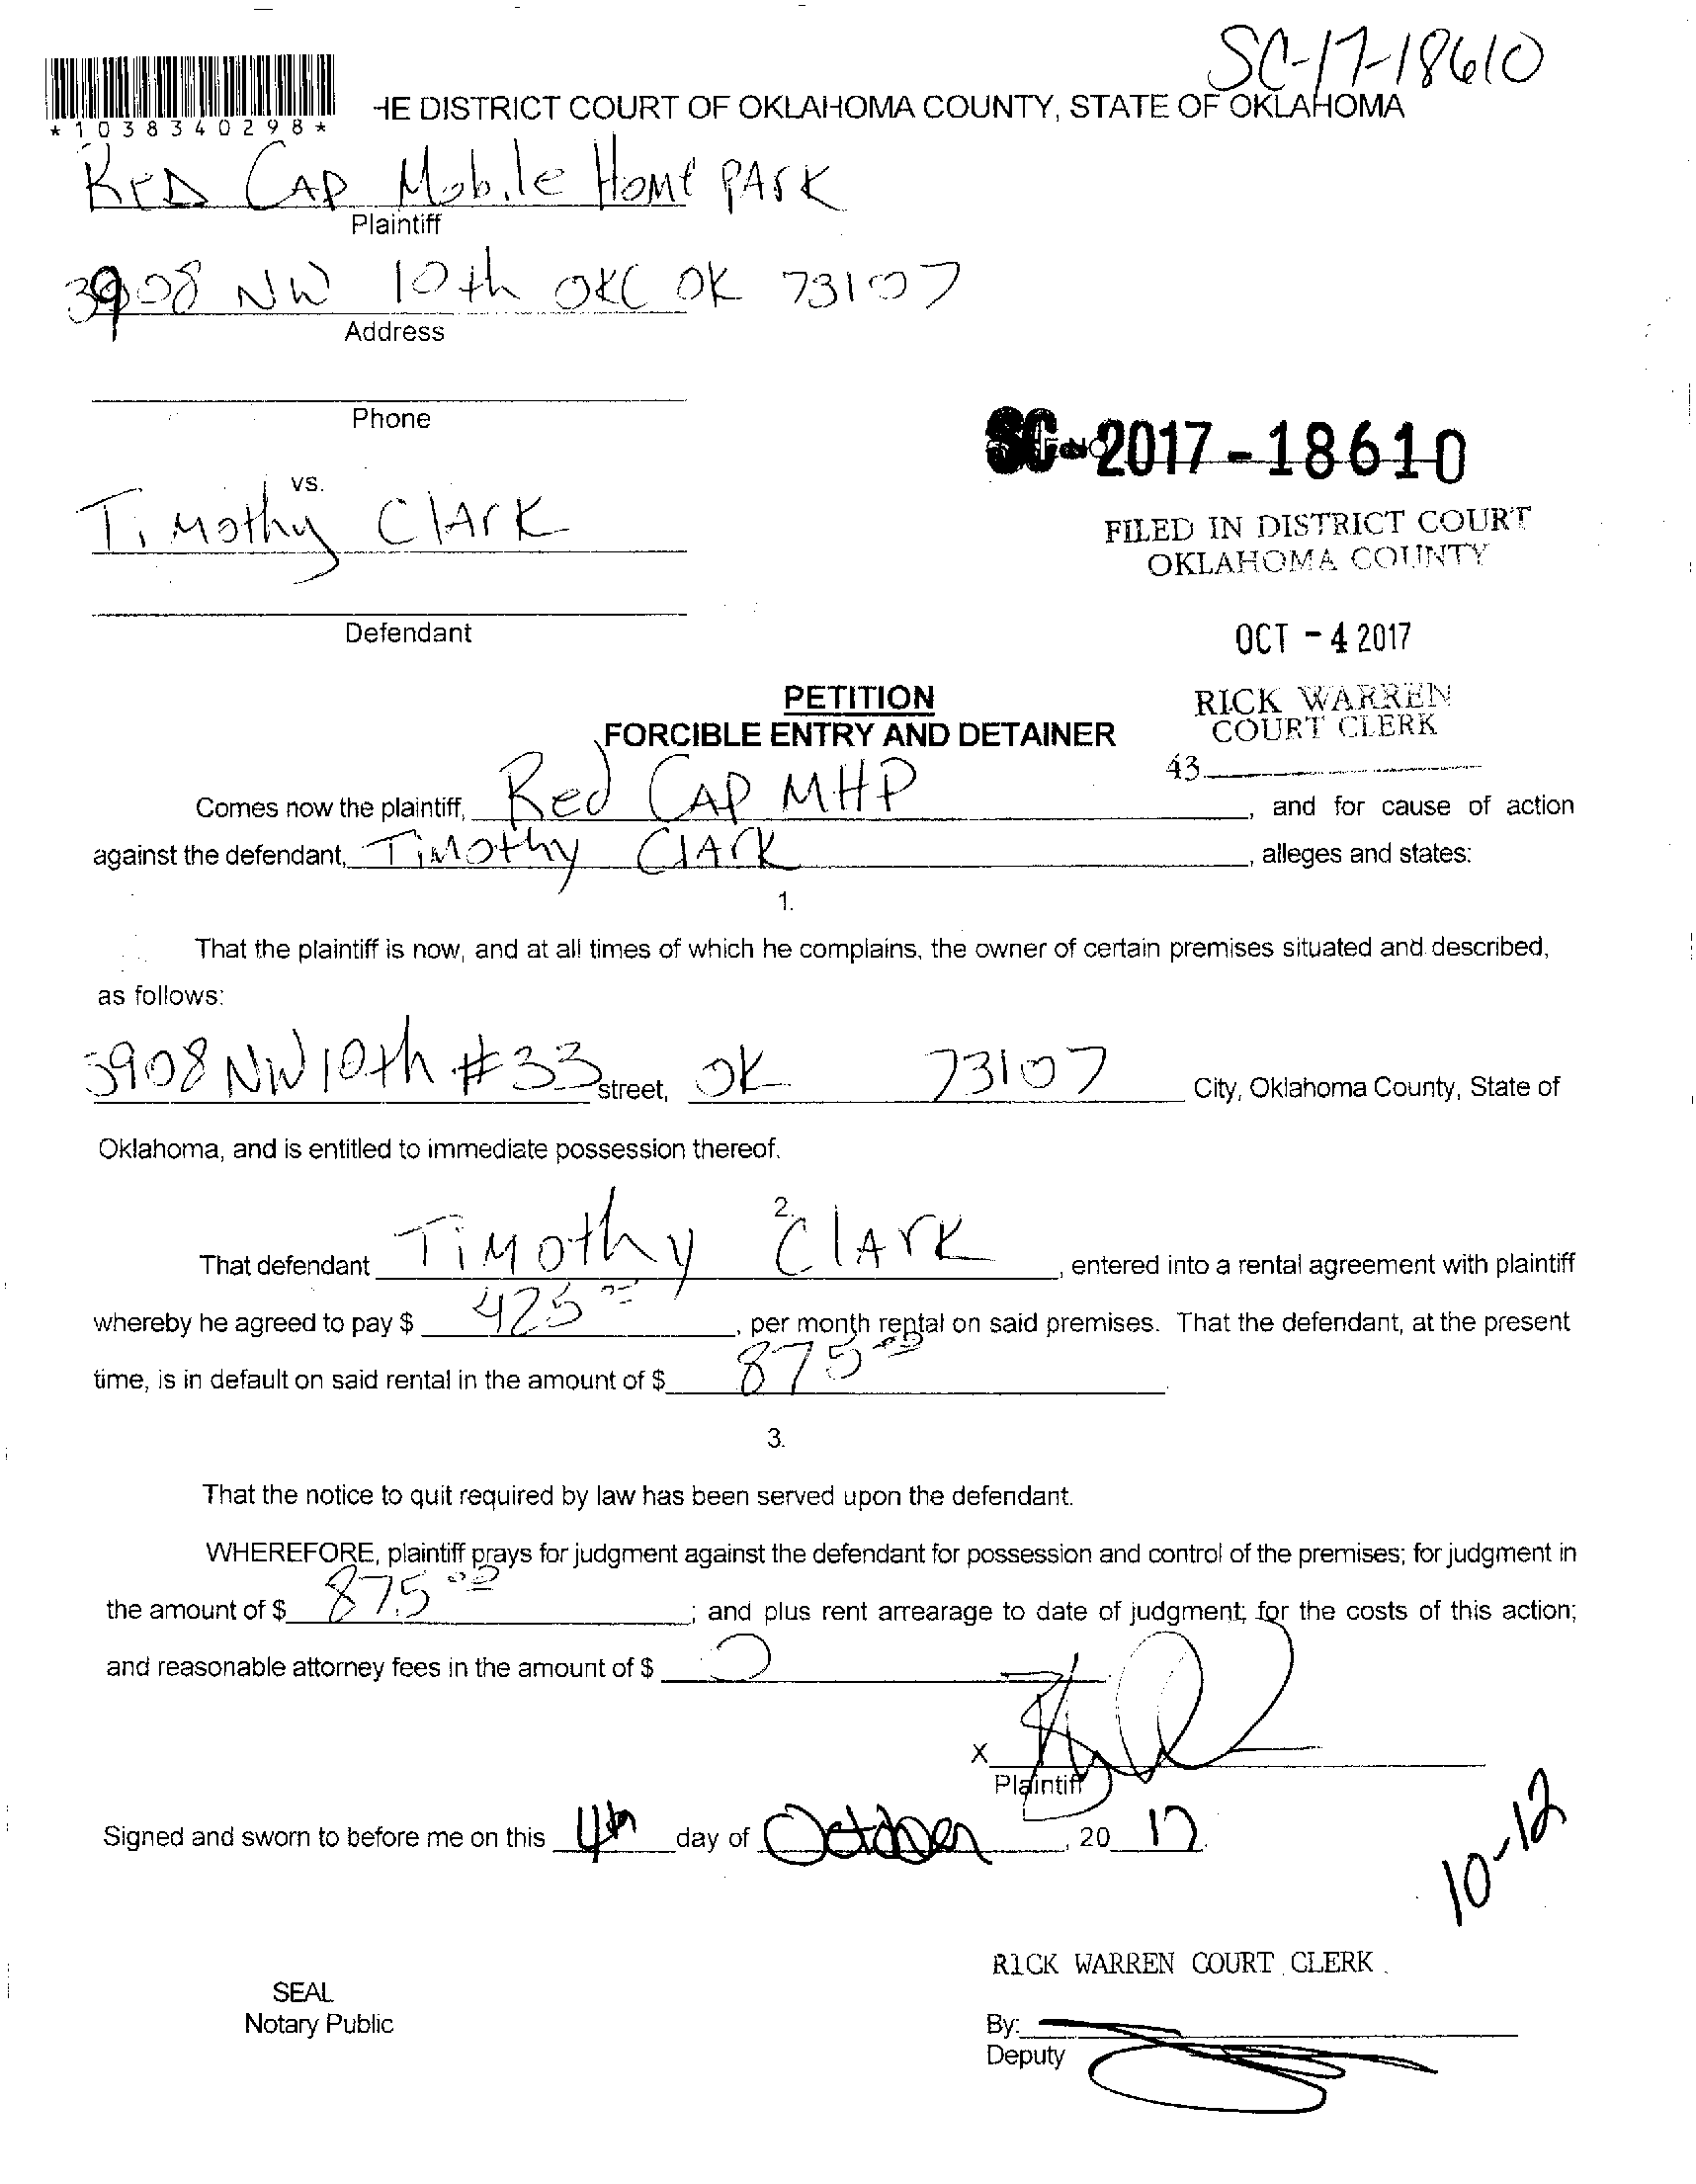 SC-17-18610
*1038340298*
HE DISTRICT COURT OF OKLAHOMA COUNTY, STATE OF OKLAHOMA
Red Cap Mobile Home Park
Plaintiff
3908 NW 10th OKC OK 73107
Address
Phone
SC-2017-18610
vs.
Timothy Clark
FILED IN DISTRICT COURT
OKLAHOMA COUNTY
Defendant
OCT - 4 2017
PETITION
FORCIBLE ENTRY AND DETAINER
RICK WARREN
COURT CLERK
43
Comes now the plaintiff, Red Cap MHP, and for cause of action
against the defendant, Timothy Clark, alleges and states:
1.
That the plaintiff is now, and at all times of which he complains, the owner of certain premises situated and described,
as follows:
3908 NW 10th #33 street, OK 73107 City, Oklahoma County, State of
Oklahoma, and is entitled to immediate possession thereof.
2.
That defendant Timothy Clark, entered into a rental agreement with plaintiff
whereby he agreed to pay $ 425 00, per month rental on said premises. That the defendant, at the present
time, is in default on said rental in the amount of $ 875 00.
3.
That the notice to quit required by law has been served upon the defendant.
WHEREFORE, plaintiff prays for judgment against the defendant for possession and control of the premises; for judgment in
the amount of $ 875 00; and plus rent arrearage to date of judgment; for the costs of this action;
and reasonable attorney fees in the amount of $ 0.
X
Plaintiff
Signed and sworn to before me on this 4th day of October, 20 17.
10-12
RICK WARREN COURT CLERK
SEAL
Notary Public
By:
Deputy